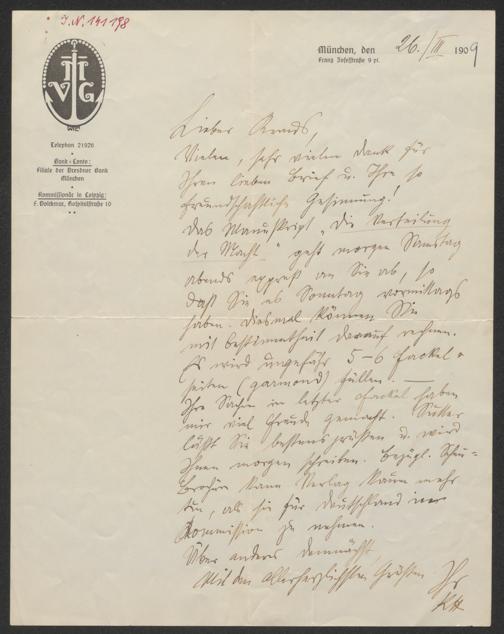 J. N. 141 198
M V G
Telephon 21926
Bank-Conto:
Filiale der Dresdner Bank
München
Kommissionär in Leipzig:
F. Volckmar, Hospitalstraße 10
München, den 26./III 1909
Franz Josefstraße 9 pt.
Lieber Kraus,
Vielen, sehr vielen Dank für
Ihren lieben Brief u. Ihre so
freundschaftliche Gesinnung!
Das Manuskript „Die Verteilung
der Macht" geht morgen Samstag
abends expreß an Sie ab, so
daß Sie es Sonntag vormittags
haben. Diesmal können Sie
mit Bestimmtheit darauf rechnen.
Es wird ungefähr 5-6 Fackel-
seiten (garmond) füllen. —
Ihre Sachen in letzter Fackel haben
mir viel Freude gemacht.
läßt Sie bestens grüßen u. wird
Ihnen morgen schreiben. Bezügl.
Brochüre kann Verlag kaum mehr
tun, als sie für Deutschland in
Kommission zu nehmen.
Über anderes demnächst.
Mit den allerherzlichsten Grüßen Ihr
KH